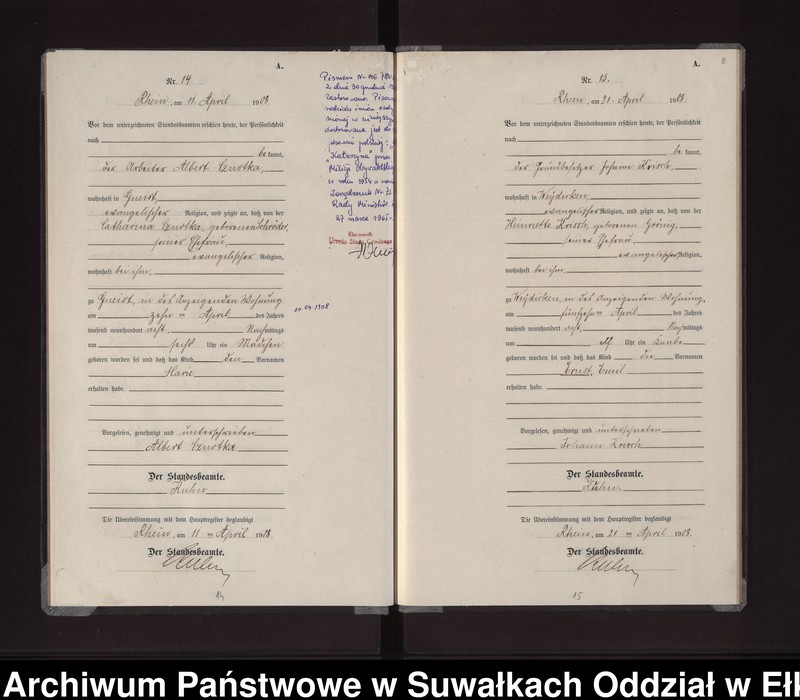 A.
Nr. 14
Rhein, am 11. April 1908.
Vor dem unterzeichneten Standesbeamten erschien heute, der Persönlichkeit
nach
be kannt,
der Arbeiter Albert Cznotka,
wohnhaft in Gneist,
evangelischer Religion, und zeigte an, daß von der
Catharina Cznotka, geborenen Schröder,
seiner Ehefrau,
evangelischer Religion,
wohnhaft bei ihm,
zu Gneist, in des Anzeigenden Wohnung
am zehn ten April des Jahres
tausend neunhundert acht, Nachmittags
um sechs Uhr ein Mädchen
geboren worden sei und daß das Kind den Vornamen
Marie
erhalten habe.
Vorgelesen, genehmigt und unterschrieben
Albert Cznotka
Der Standesbeamte.
Kuhn
Die Übereinstimmung mit dem Hauptregister beglaubigt
Rhein, am 11 ten April 1908.
Der Standesbeamte.
Kuhn
14
Pismem Nr.
z dnia 30 grudnia
zastosowano
rodziców i imion
polskiej:
"Katarzyna" przez
Milicji Obywatelskiej
w roku 1954 u
Zarządzenia Nr. 72
Rady Ministrów
27 marca 1965.
Kierownik
Urzędu Stanu Cywilnego
10.04.1908
A.
8
Nr. 15.
Rhein, am 21. April 1908.
Vor dem unterzeichneten Standesbeamten erschien heute, der Persönlichkeit
nach
be kannt,
der Grundbesitzer Johann Krisch,
wohnhaft in Weydicken,
evangelischer Religion, und zeigte an, daß von der
Henriette Krisch, geborenen Gonig,
seiner Ehefrau,
evangelischer Religion,
wohnhaft bei ihm,
zu Weydicken, in des Anzeigenden Wohnung,
am fünfzehn ten April des Jahres
tausend neunhundert acht, Nachmittags
um elf Uhr ein Knabe
geboren worden sei und daß das Kind die Vornamen
Ernst, Emil
erhalten habe.
Vorgelesen, genehmigt und unterschrieben
Johann Krisch
Der Standesbeamte.
Kuhn.
Die Übereinstimmung mit dem Hauptregister beglaubigt
Rhein, am 21 ten April 1908.
Der Standesbeamte.
Kuhn
15
Archiwum Państwowe w Suwałkach Oddział w Eł